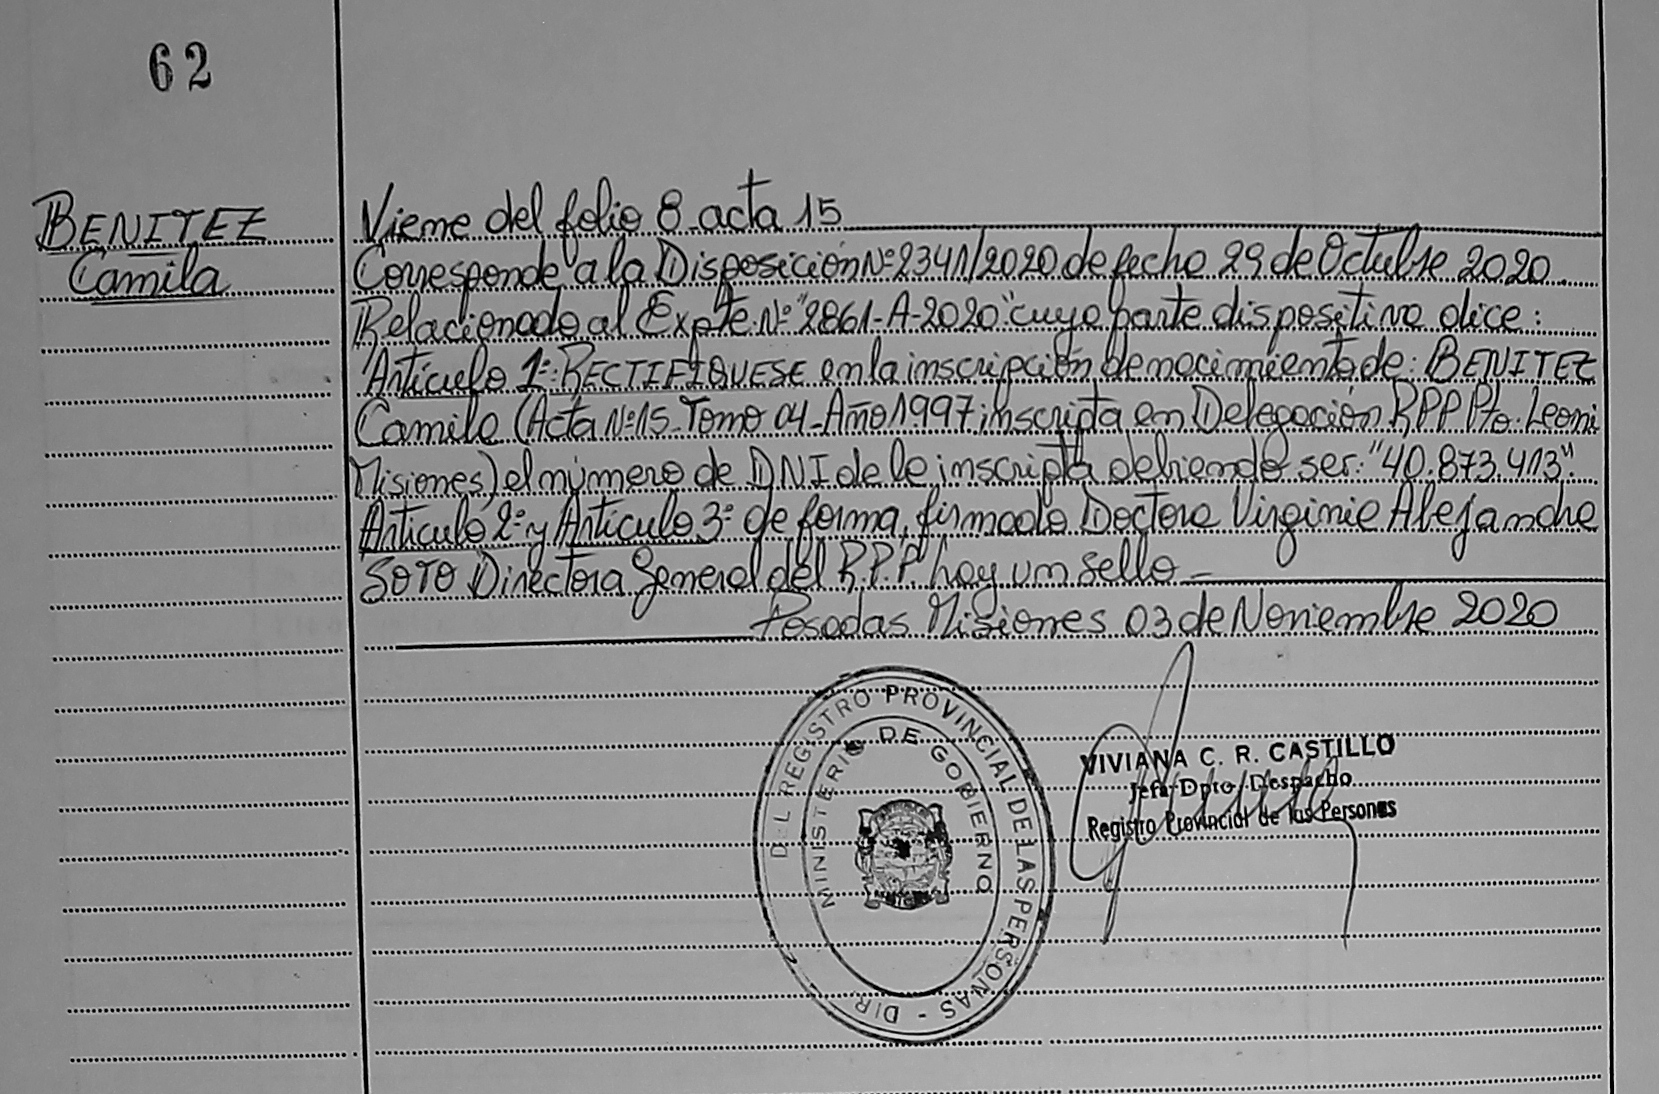 62
BENITEZ
Camila
Viene del folio 8 acta 15
Corresponde a la Disposición Nº 2341/2020 de fecha 29 de Octubre 2020
Relacionado al Expte. Nº "2861-A-2020" cuya parte dispositiva dice:
"Artículo 1º: RECTIFIQUESE en la inscripción de nacimiento de: BENITEZ
Camila (Acta Nº 15 - Tomo 04 - Año 1997 inscripta en Delegación RPP Pto. Leoni
Misiones) el número de DNI de la inscripta debiendo ser: "40.873.413".
Artículo 2º y Artículo 3º de forma, firmado Doctora Virginia Alejandra
SOTO Directora General del R.P.P hay un sello -
Posadas Misiones 03 de Noviembre 2020
DIR. DEL REGISTRO PROVINCIAL DE LAS PERSONAS -
MINISTERIO DE GOBIERNO
VIVIANA C. R. CASTILLO
Jefa Dpto. Despacho
Registro Provincial de las Personas